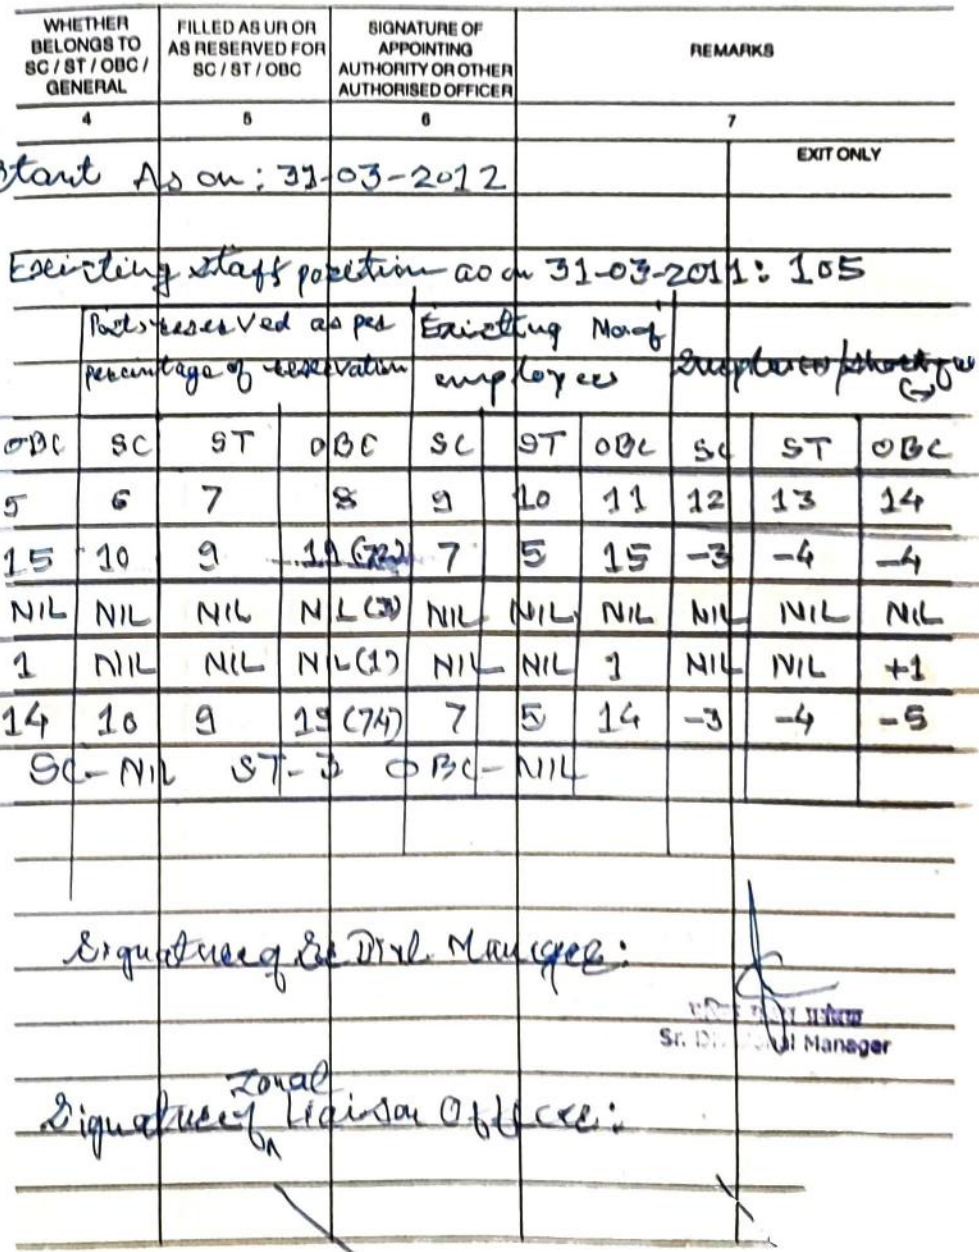 WHETHER BELONGS TO SC / ST / OBC / GENERAL FILLED AS UR OR AS RESERVED FOR SC / ST / OBC SIGNATURE OF APPOINTING AUTHORITY OR OTHER AUTHORISED OFFICER REMARKS
4 5 6 7
EXIT ONLY
As on: 31-03-2012
Existing staff position as on 31-03-2011: 105
Posts reserved as per Existing No of
percentage of reservation employees
OBC SC ST OBC SC ST OBC SC ST OBC
5 6 7 8 9 10 11 12 13 14
15 10 9 19 7 5 15 -3 -4 -4
NIL NIL NIL NIL (3) NIL NIL NIL NIL NIL NIL
1 NIL NIL NIL (1) NIL NIL 1 NIL NIL +1
14 10 9 19 (74) 7 5 14 -3 -4 -5
SC - NIL ST - 3 OBC - NIL
Signature of Sr Divl. Manager:
Sr. Manager
Zonal
Signature of Liaison Officer: